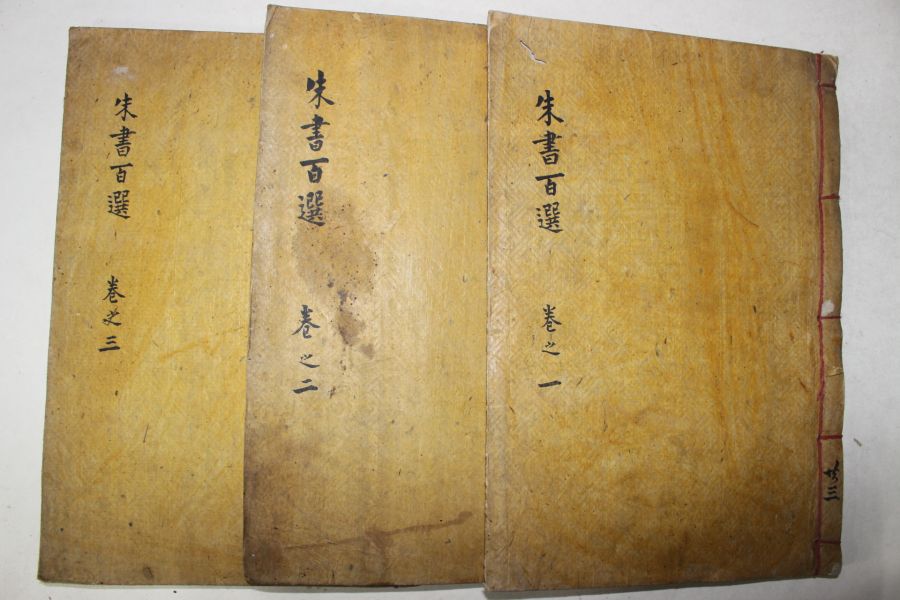 朱書百選 卷之一
朱書百選 卷之二
朱書百選 卷之三
共三